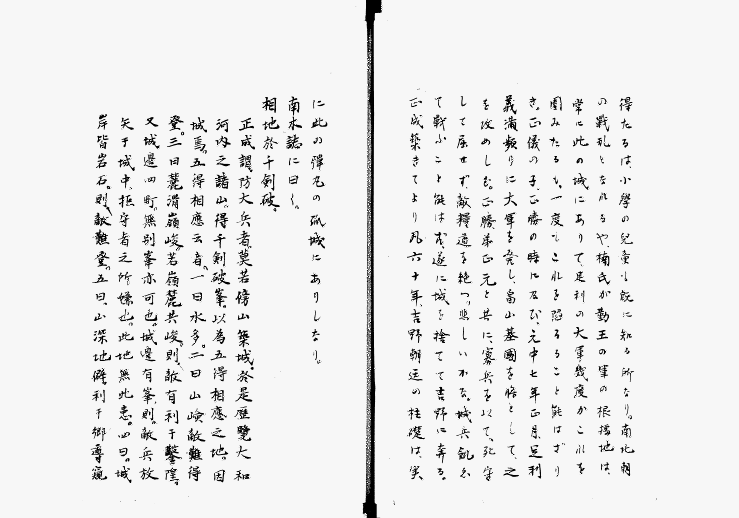 得たるは小學の兒童も既に知る所なり。南北朝
の戰乱となれるや、楠氏が勤王の軍の根據地は、
常に此の城にありて、足利の大軍幾度かこれを
圍みたるも、一度もこれを陷るること能はざり
き。正儀の子、正勝の時に及び、元中七年正月、足利
義満頻りに大軍を発し、畠山基國を將として、之
を攻めしむ。正勝弟正元と共に、寡兵を以て、死守
して屈せず、敵糧道を絶つ。悲しいかな。城兵飢ゑ
て戰ふこと能はず、遂に城を捨てて吉野に奔る。
正成築きてより凡六十年、吉野朝運の柱礎は、実
に此の彈丸の孤城にありしなり。
南木誌に曰く。
相地於千剣破。
正成謂、防大兵者、莫若傍山築城。於是歴覽大和
河内之諸山、得千剣破峯。以為五得相應之地。因
城焉。五得相應云者、一曰水多。二曰山嶮敵難得
登。三曰麓滑嶺峻。若嶺麓共峻、則敵有利于鑿隆。
又城邊四町、無別峯亦可也。城邊有峯、則敵兵放
矢于城中、拒守者之所嫌也。此地無此患。四曰。城
岸皆岩石。則敵難登。五曰、山深地僻、利于郷導窺